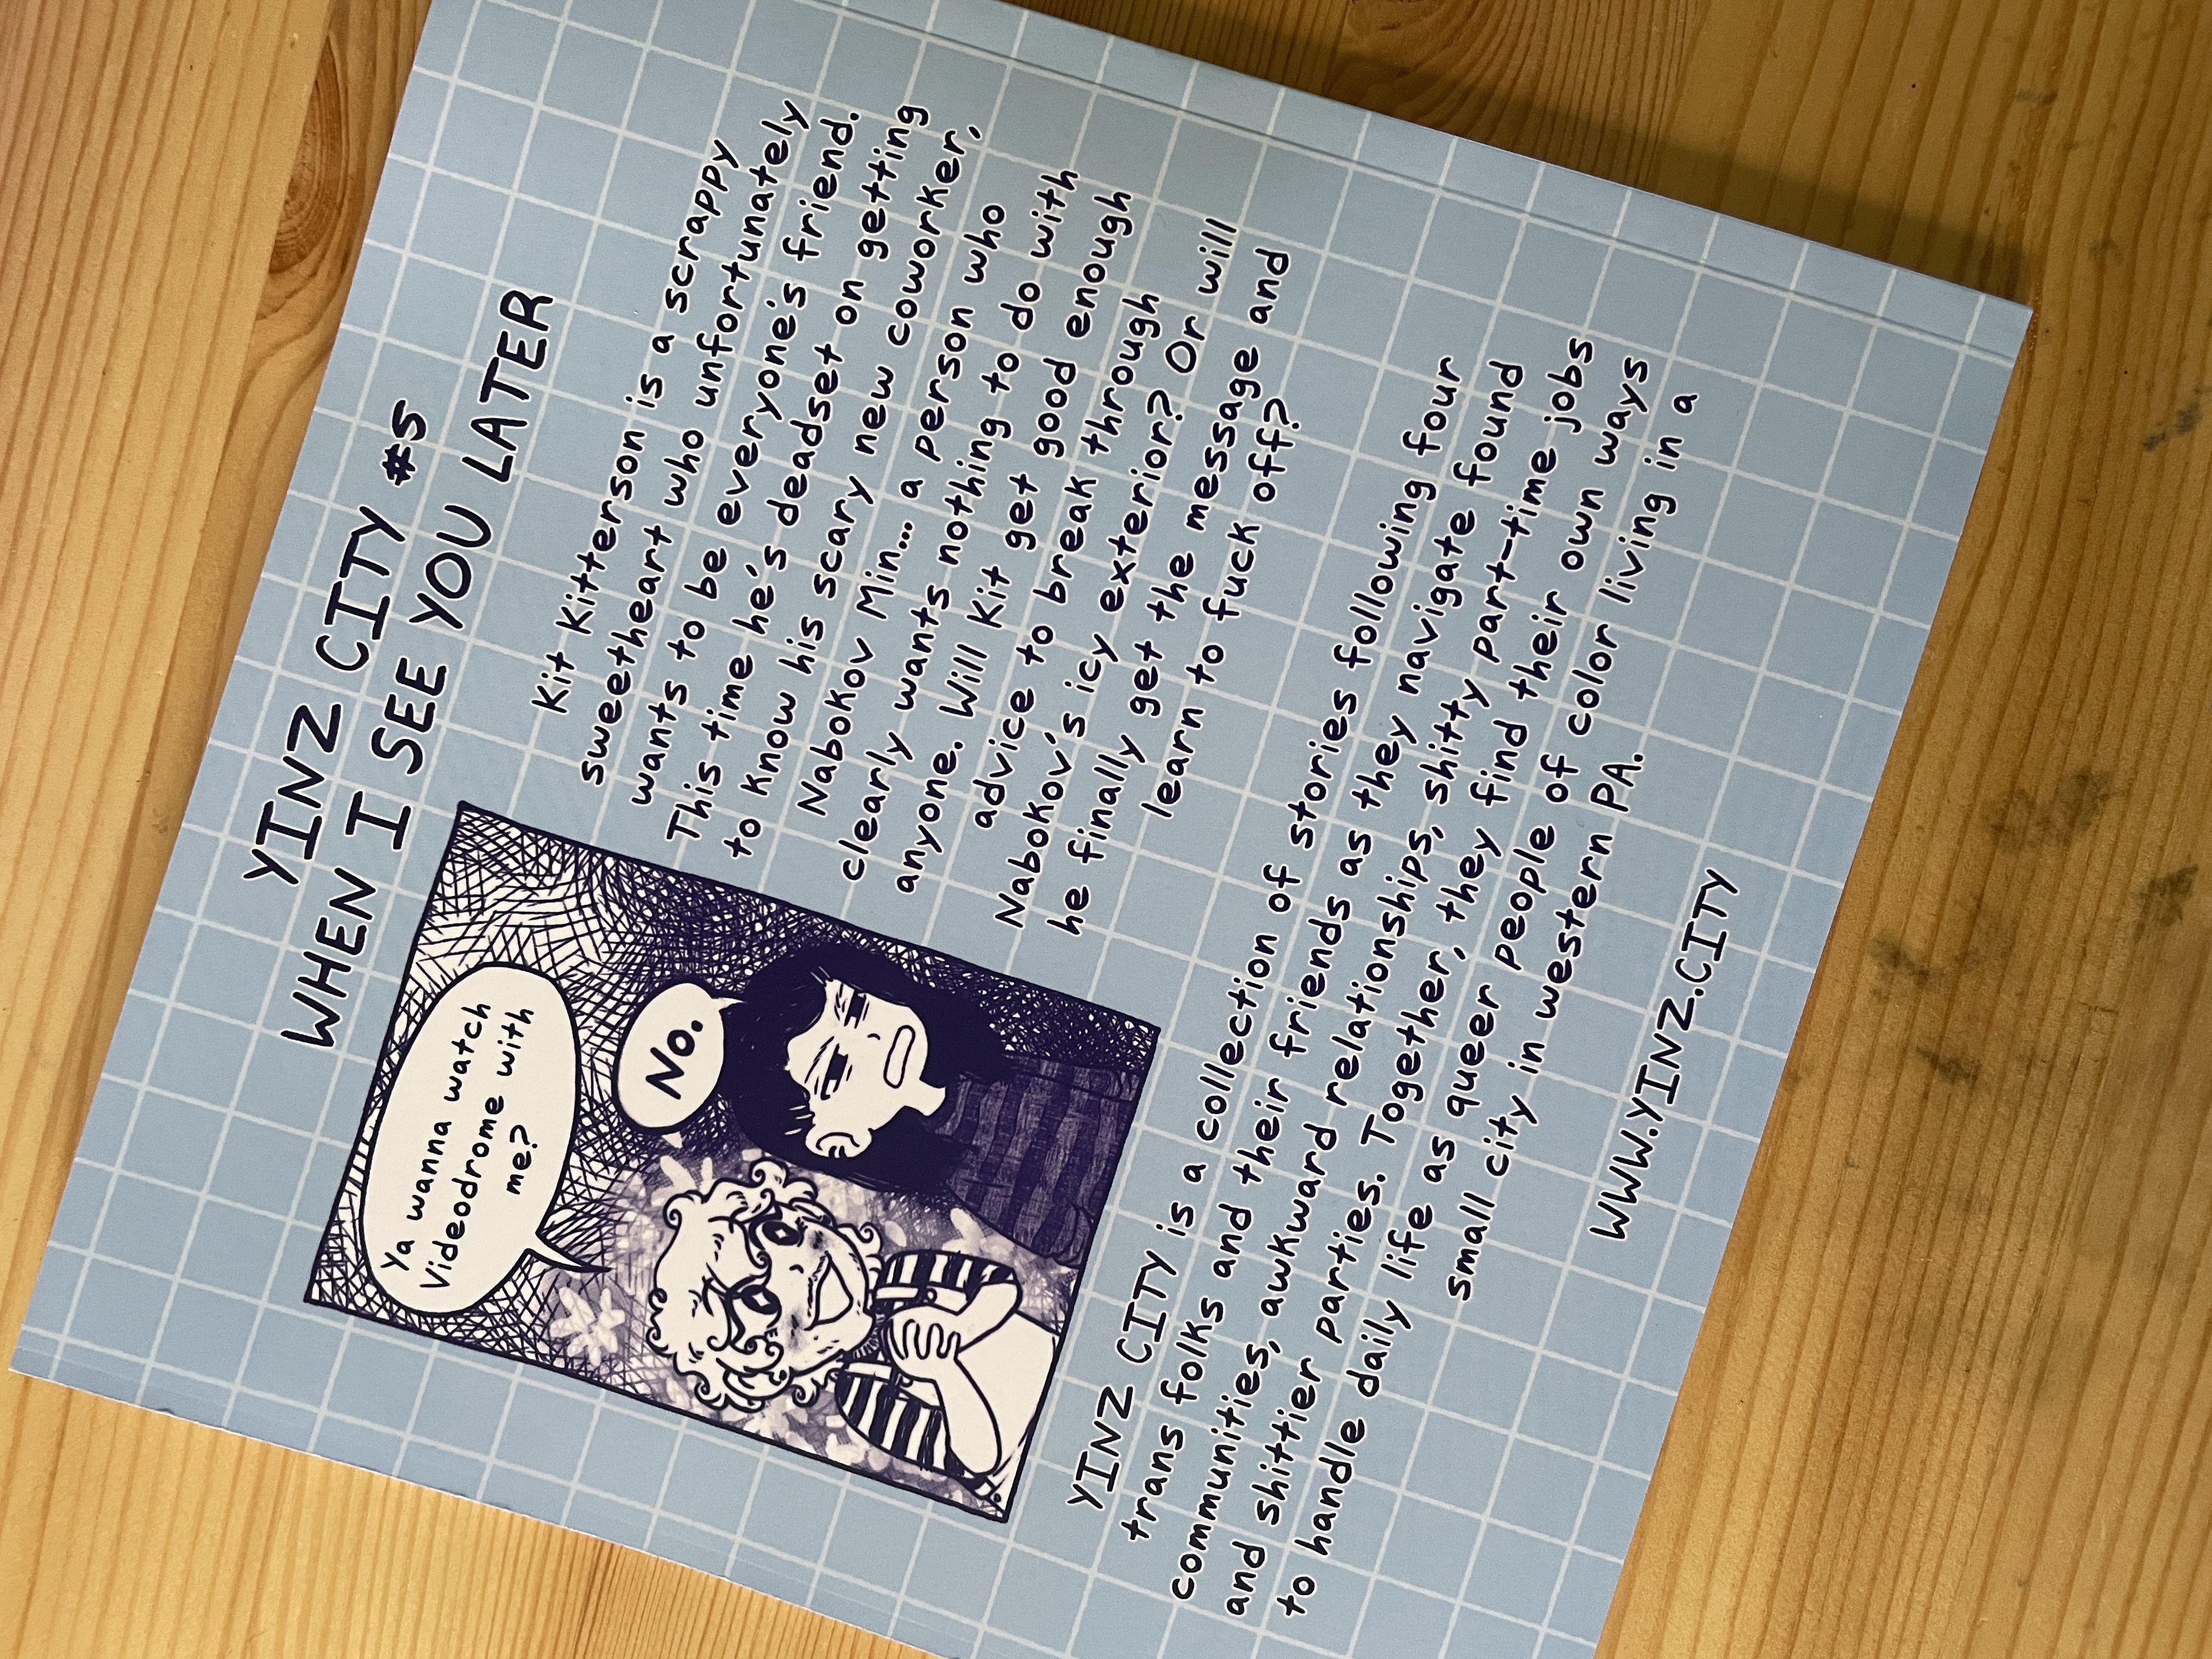 YINZ CITY #5
WHEN I SEE YOU LATER
Ya wanna watch
Videodrome with
me?
No.
Kit Kitterson is a scrappy
sweetheart who unfortunately
wants to be everyone's friend.
This time he's deadset on getting
to know his scary new coworker,
Nabokov Min... a person who
clearly wants nothing to do with
anyone. Will Kit get good enough
advice to break through
Nabokov's icy exterior? Or will
he finally get the message and
learn to fuck off?
YINZ CITY is a collection of stories following four
trans folks and their friends as they navigate found
communities, awkward relationships, shitty part-time jobs
and shittier parties. Together, they find their own ways
to handle daily life as queer people of color living in a
small city in western PA.
WWW.YINZ.CITY